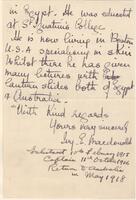 in Egypt. He was educated
at St. Ignatius College
He is now living in Boston
U.S.A specialising in skin
Whilst there he has given
many lectures with
Lantern slides both of Egypt
& Australia.
With kind regards
Yours very sincerely
Ivy E. Macdonald
Lieutenant 1st February 1915
Captain 11th October 1916
Return to Australia
May 1918